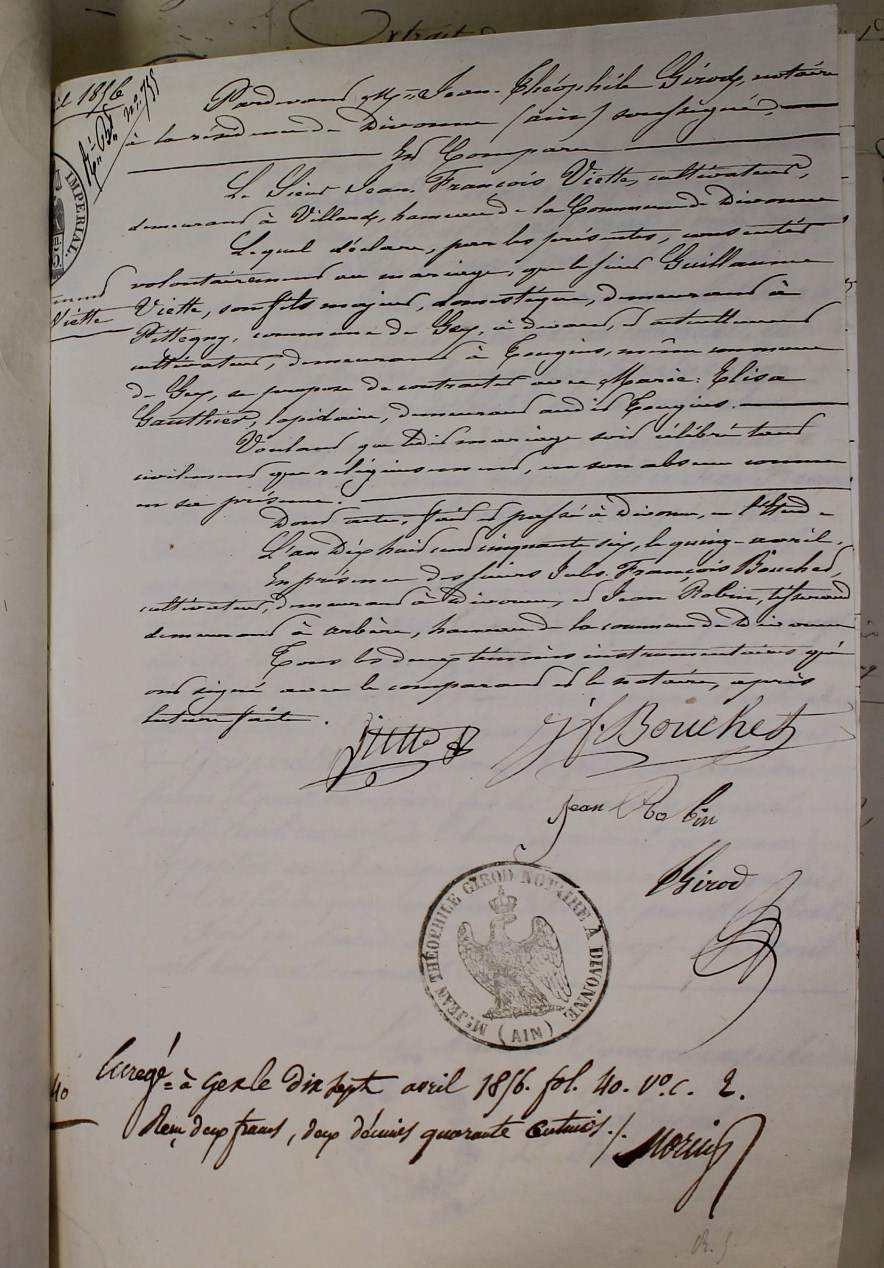 Extrait
il 1856
Rép. n.º 755
Pardevant Mtre. Jean-Théophile Girod, notaire
à la résidence de Divonne (Ain) soussigné,
Est Comparu
Le Sieur Jean François Viette, cultivateur,
demeurant à Villard, hameau de la Commune de Divonne
Lequel déclare, par les présentes, consentir
volontairement au mariage, que le sieur Guillaume
Viette
Viette, son fils majeur, domestique, demeurant à
Pittegny, commune de Gex, ci devant, et actuellement
cultivateur, demeurant à Tougins, même commune
de Gex, se propose de contracter avec Marie-Elisa
Gauthier, lapidaire, demeurant audit Tougins.
Voulant que ledit mariage soit célébré tant
civilement que religieusement, en son absence comme
en sa présence.
Dont acte, fait et passé à Divonne, en l'Etude
L'an Dix huit cent cinquante six, le quinze avril.
En présence des sieurs Jules François Bouchet,
cultivateur, demeurant à Divonne, et Jean Robin, tisserand
demeurant à Arbère, hameau de la commune de Divonne
Tous les deux témoins instrumentaires qui
ont signé avec le comparant et le notaire, après
lecture faite.
Viette
J f. Bouchet
Jean Robin
Girod
IMPERIAL.
Mᵉ. JEAN THÉOPHILE GIROD NOTAIRE A DIVONNE
(AIN)
40
Enregé à Gex le dix sept avril 1856. fol. 40. Vº. c. 2.
Reçu deux francs, deux décimes quarante centimes./.
Morin